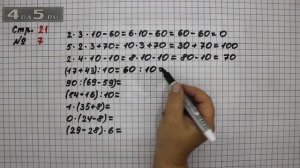 4GDZ.RU
Стр. 21
№ 7
2·3·10-60=6·10-60=60-60=0
5·2·3+70=10·3+70=30+70=100
2·4·10-10=8·10-10=80-10=70
(17+43):10=60:10=
90:(69-59)=
(84+16):10=
1·(35+8)=
0·(24-8)=
(29-28)·6=